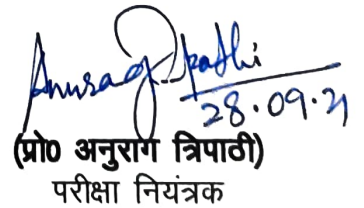 Anurag Tripathi
28.09.21
(प्रो0 अनुराग त्रिपाठी)
परीक्षा नियंत्रक